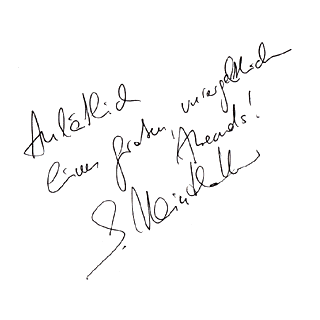 Anläßlich
eines großen, unvergeßlichen
Abends!